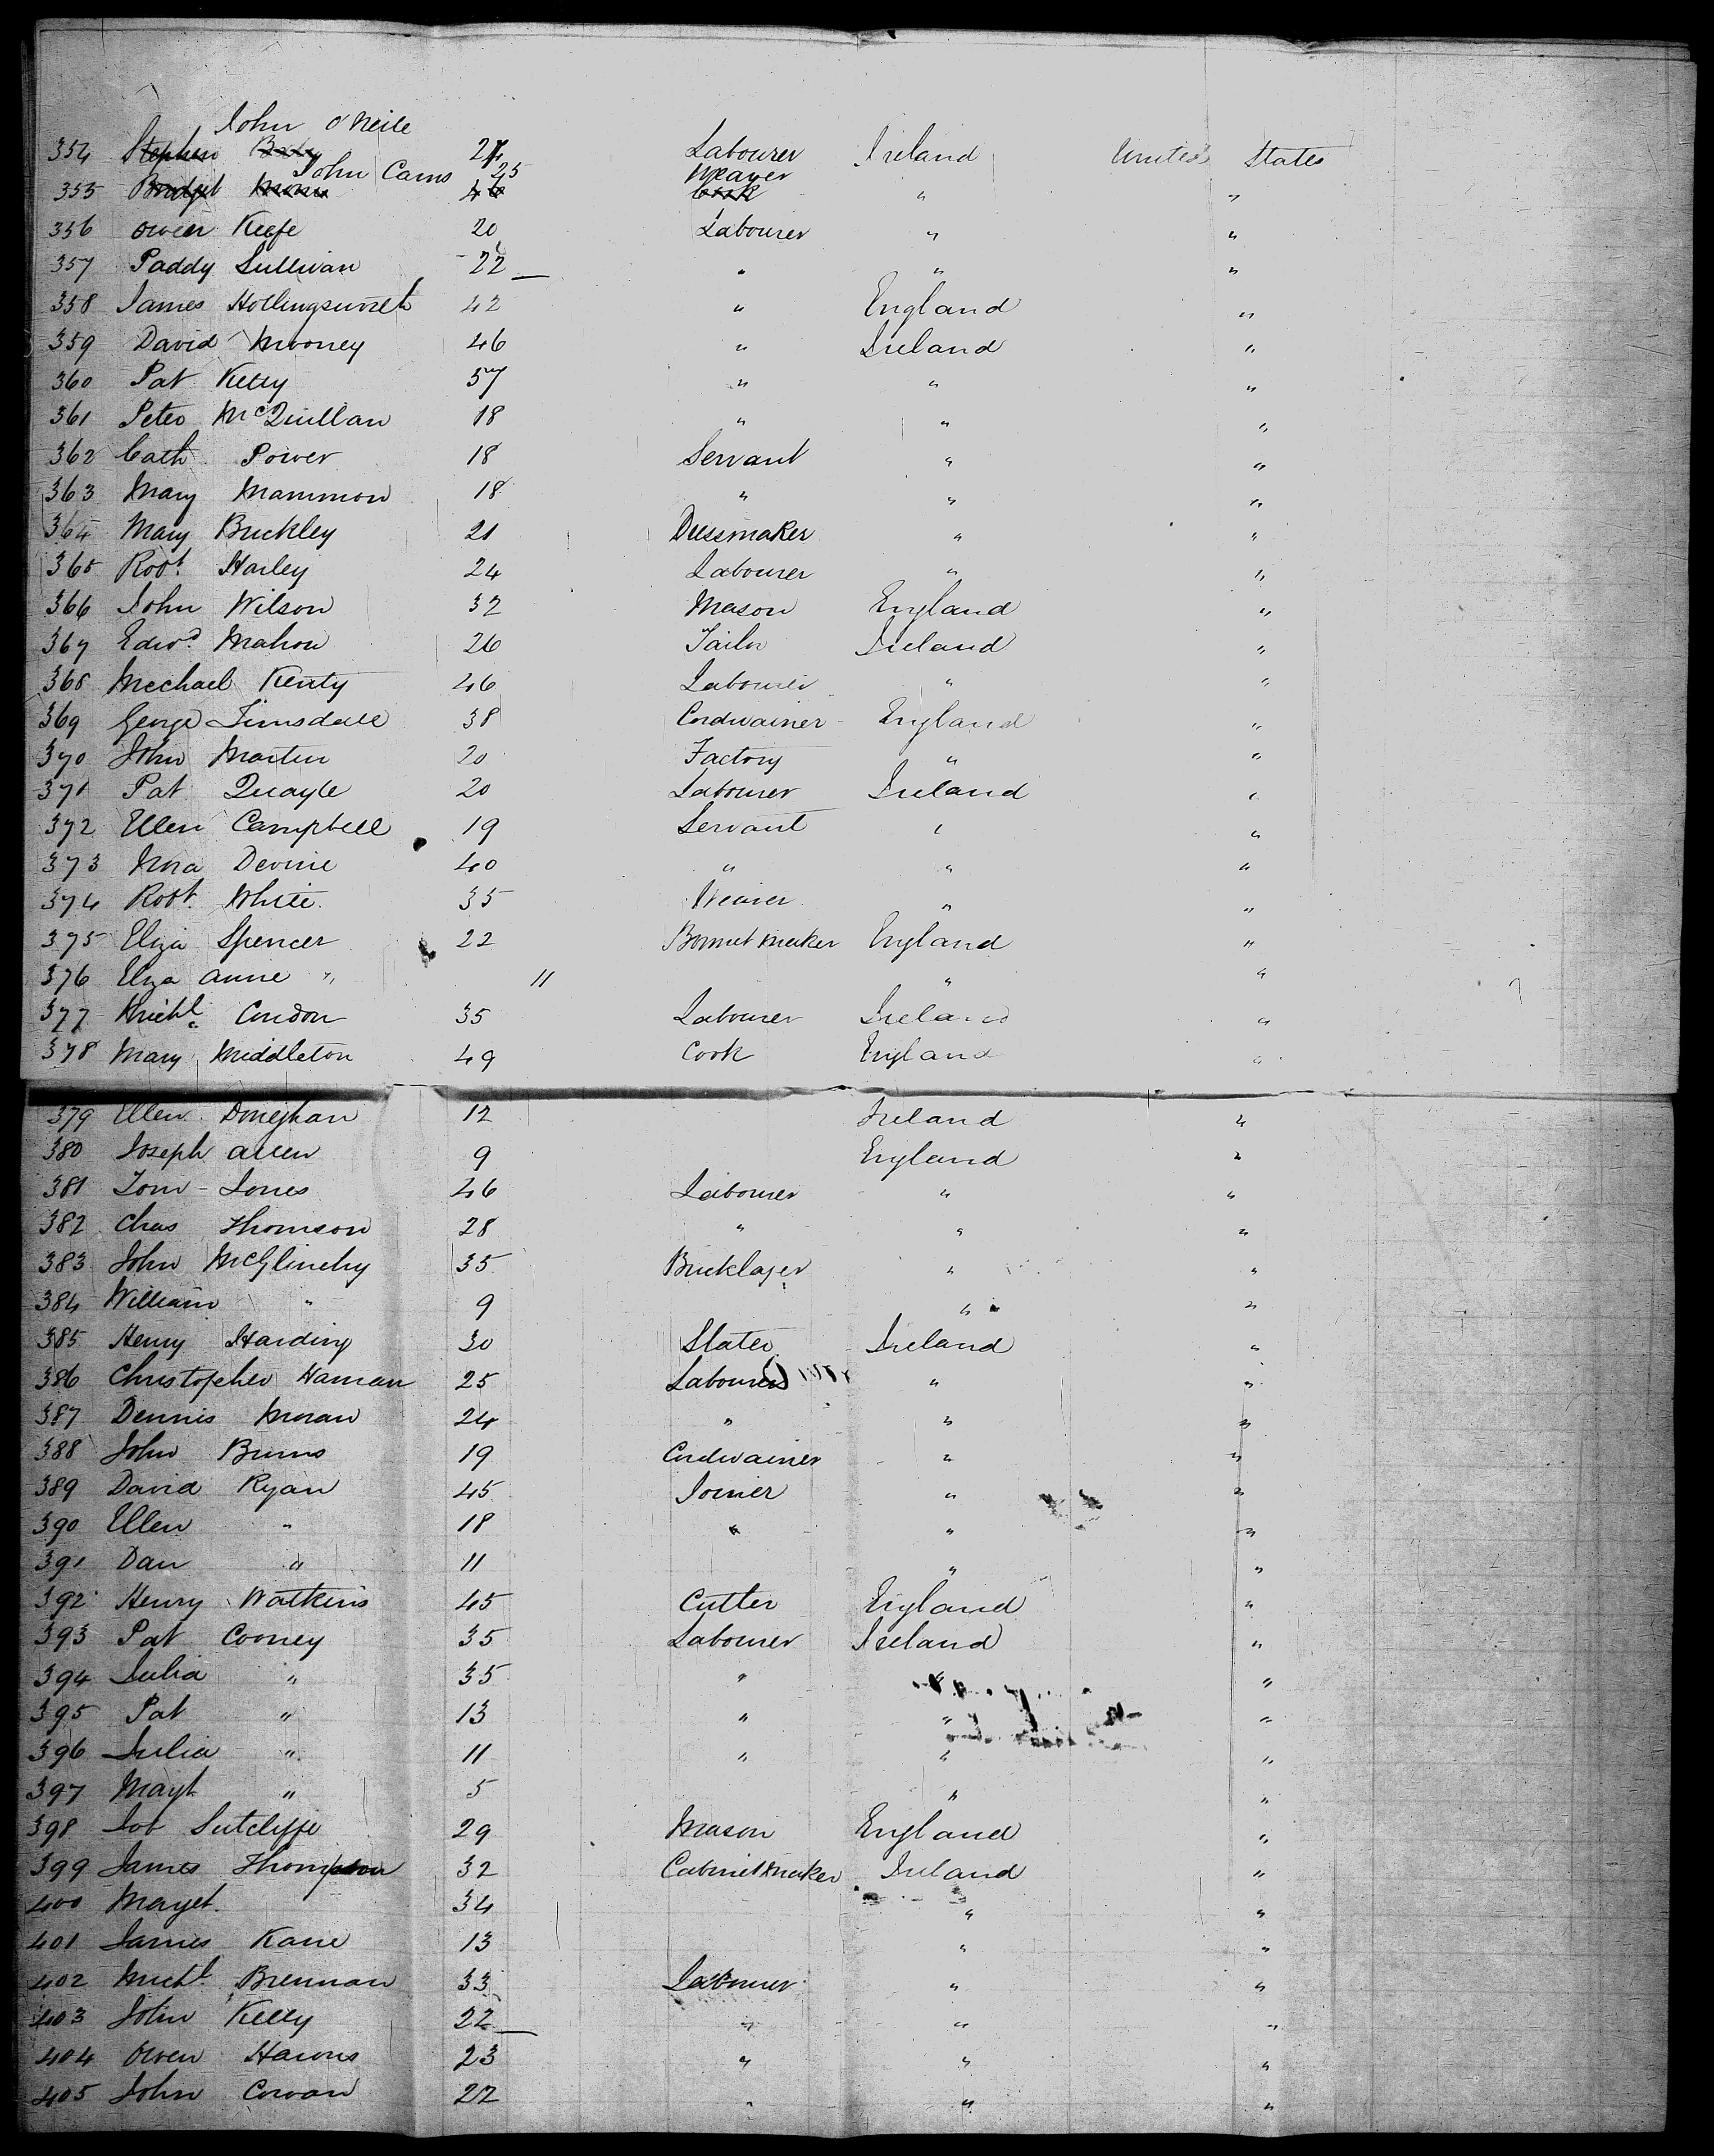 John O'Neile
354 Stephen Body 27 Labourer Ireland United States
John Carns 25 Weaver
355 Bridget Cook " "
356 Owen Keefe 20 Labourer " "
357 Paddy Sullivan 22 " " "
358 James Hollingsworth 42 " England "
359 David Mooney 46 " Ireland "
360 Pat Kelly 57 " " "
361 Peter McQuillan 18 " " "
362 Cath Power 18 Servant " "
363 Mary Mammon 18 " " "
364 Mary Buckley 21 Dressmaker " "
365 Robt. Harley 24 Labourer " "
366 John Wilson 32 Mason England "
367 Edwd. Mahon 26 Tailor Ireland "
368 Mechael Kenty 46 Labourer " "
369 George Timsdall 38 Cordwainer England "
370 John Martin 20 Factory " "
371 Pat Quayle 20 Labourer Ireland "
372 Ellen Campbell 19 Servant " "
373 Nora Devine 40 " " "
374 Robt. White 35 Weaver " "
375 Eliza Spencer 22 Bonnet maker England "
376 Eliza Anne " 11 " "
377 Michl. Condon 35 Labourer Ireland "
378 Mary Middleton 49 Cook England "
379 Ellen Doneghan 12 Ireland "
380 Joseph Allen 9 England "
381 Tom Jones 46 Labourer " "
382 Chas Thomson 28 " " "
383 John McGlinchy 35 Bricklayer " "
384 William " 9 " "
385 Henry Harding 30 Slater Ireland "
386 Christopher Hanan 25 Labourer " "
387 Dennis Moran 24 " " "
388 John Burns 19 Cordwainer " "
389 David Ryan 45 Joiner " "
390 Ellen " 18 " " "
391 Dan " 11 " "
392 Henry Watkins 45 Cutter England "
393 Pat Cooney 35 Labourer Ireland "
394 Julia " 35 " " "
395 Pat " 13 " " "
396 Julia " 11 " " "
397 Magt " 5 " "
398 Job Sutcliffe 29 Mason England "
399 James Thompson 32 Cabinet maker Ireland "
400 Marget. 34 " "
401 James Kane 13 " "
402 Michl. Brennan 33 Labourer " "
403 John Kelly 22 " " "
404 Owen 23 " " "
405 John Cowan 22 " " "